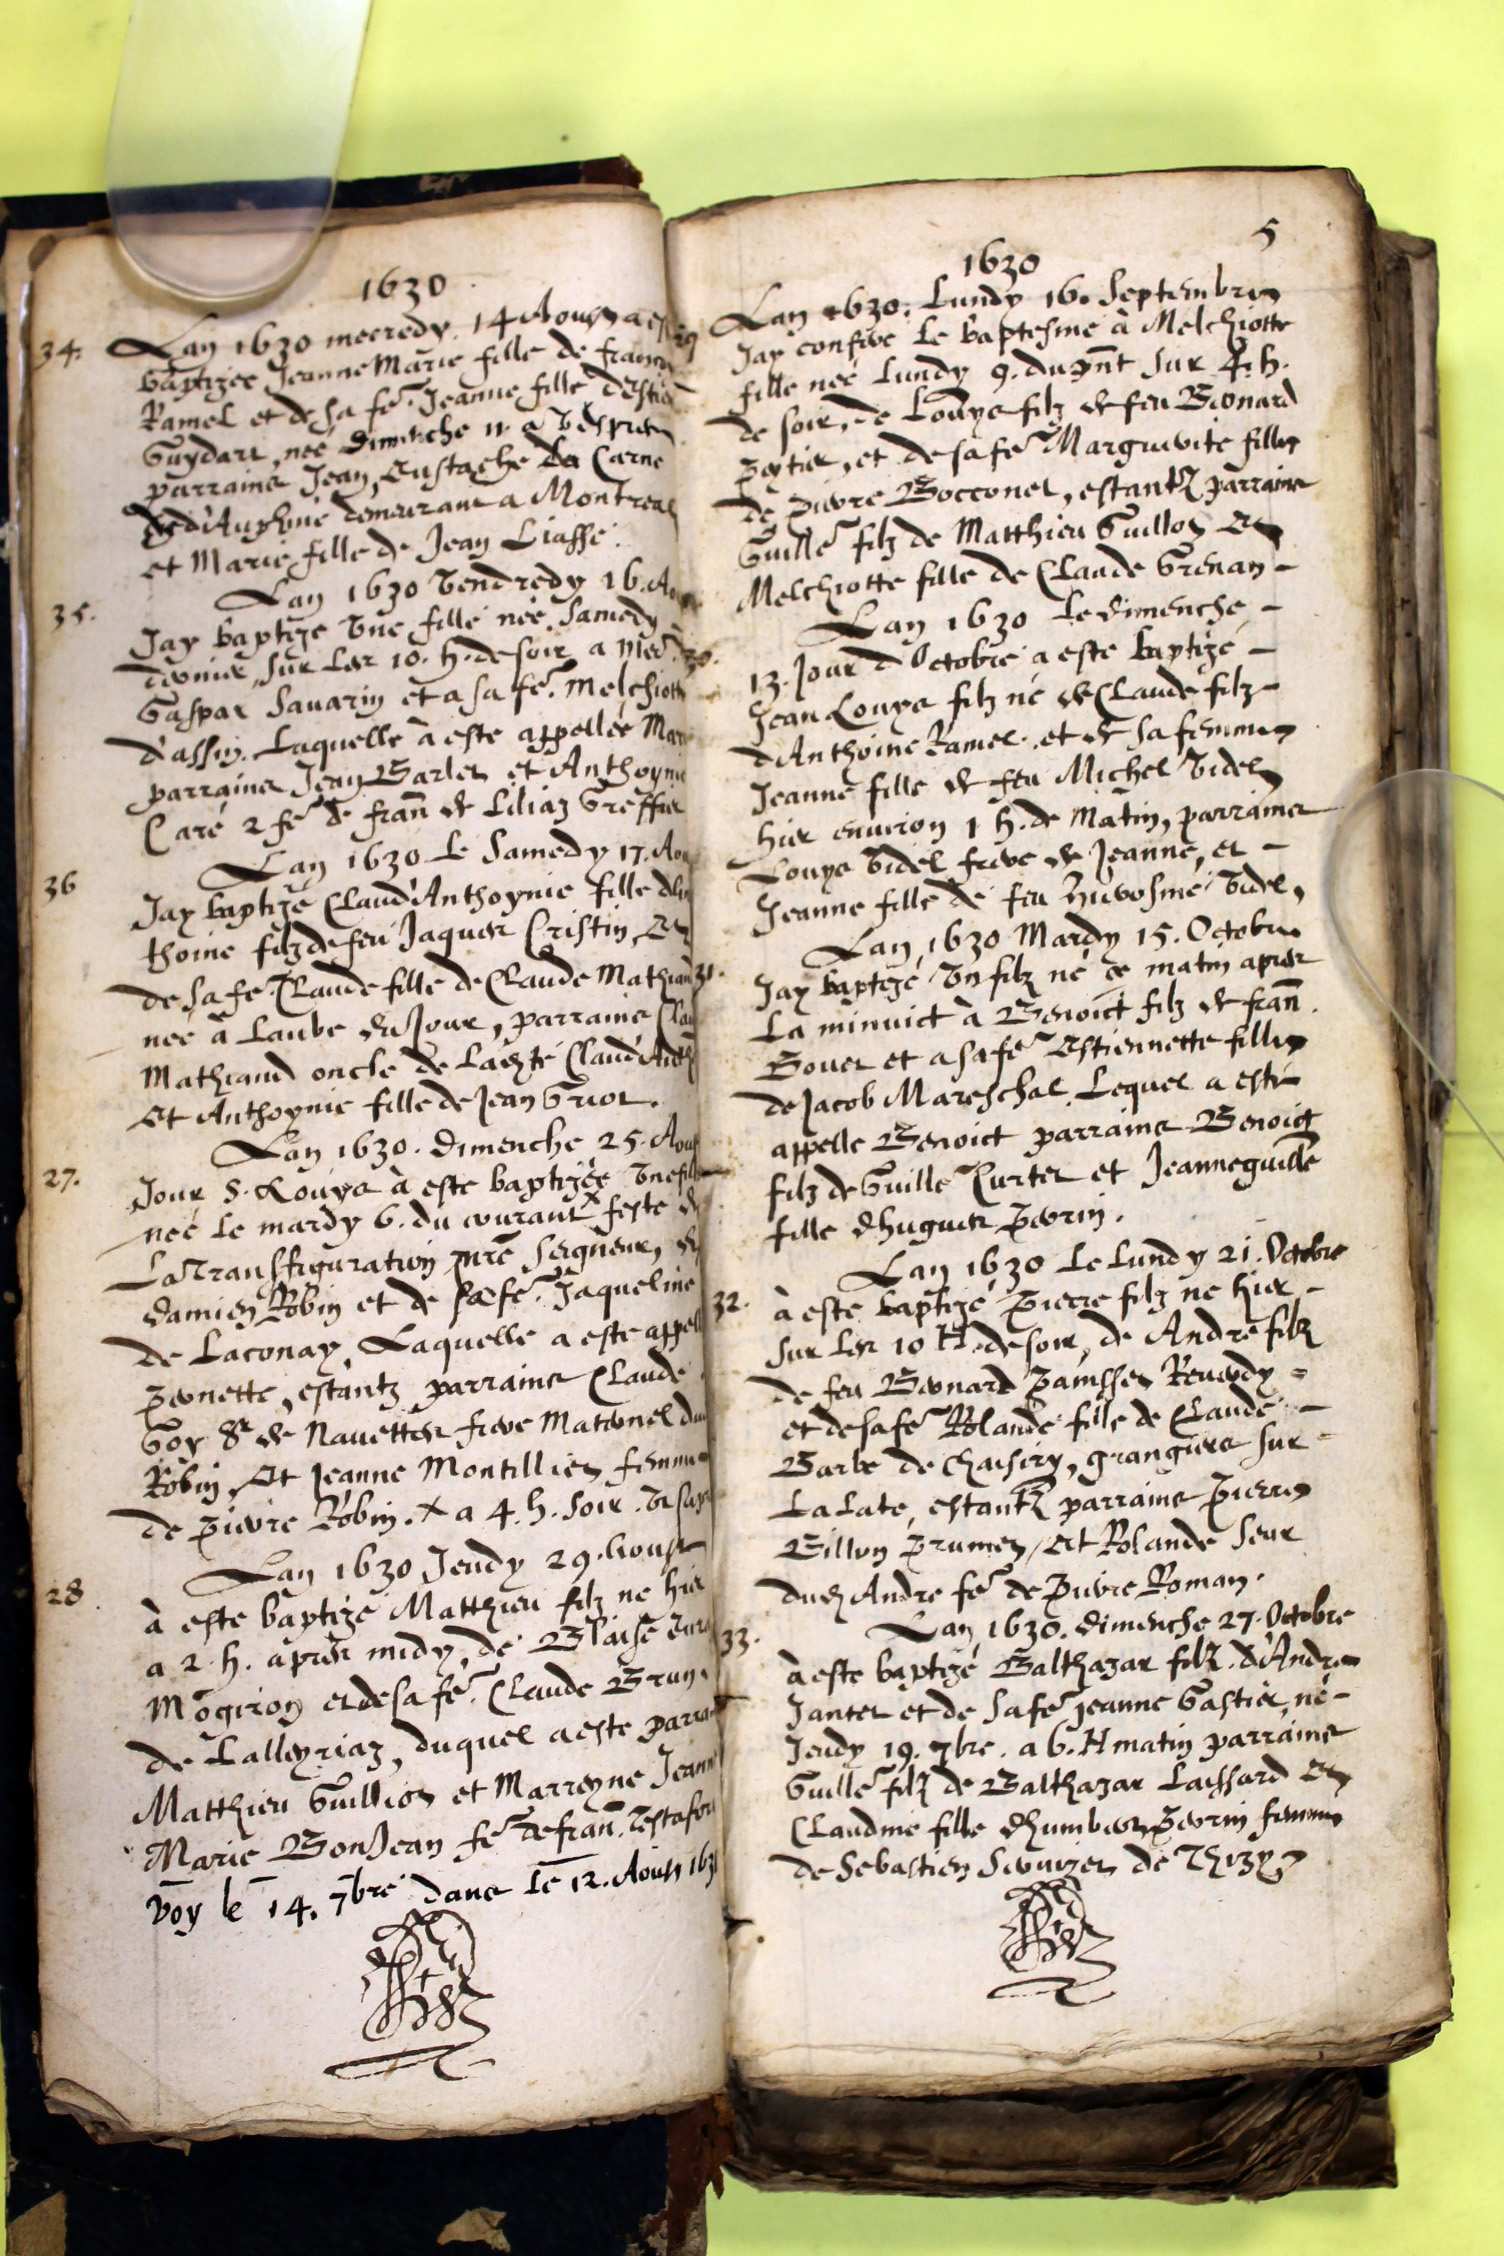 1630
34. Lan 1630 mecredy. 14 Aoust a est
baptizee Jeanne Marie fille de franco
Ramel et de sa fe. Jeanne fille destie
Guydart, neé Dimenche 11. a Vespres
parrains Jean Eustache de Carne
demeurant a Montreal
et Marie fille de Jean Liasse.
35. Lan 1630 Vendredy 16. Aoust
Jay baptizé Vne fille neé Samedy
dernier, sur les 10. h. de soir a
Gaspar Sauarin et a sa fe. Melchiotte
d'assin. Laquelle à este appelleé Marie
parrains Jean Barlet et Anthoynie
Caré 2 fe de fran de Liliaz Greffier
36 Lan 1630 Le Samedy 17. Aou
Jay baptizé Claud'Anthoynie fille dAn
thoine filz de feu Jaques Cristin, Et
de sa fe. Claude fille de Claude Mathiand
neé à Laube du Jour, parrains Clau
Mathiand oncle de Ladte Claud'Anth
Et Anthoynie fille de Jean Griot.
27. Lan 1630. Dimenche 25. Aoust
Jour S. Louys à este baptizeé Vne fille
neé le mardy 6. du courant x feste de
La Transffiguration nre Seigneur, de
Damien Robin et de sa fe. Jaqueline
de Laconay, Laquelle a este appell
Pernette, estantz parrains Claude
Goy Sr de Nauettes frere Maternel dud
Robin, Et Jeanne Montillier femme
de Pierre Robin. x a 4. h. soir.
28 Lan 1630 Jeudy 29. Aoust
à este baptizé Matthieu filz né hier
a 2. h. apres midy, de Blaise
Mogiron et de sa fe. Claude Brun
de Lalleyriaz, duquel a este parrain
Matthieu Guillion et Marreyne Jeanne
Marie BonJean fe de fran. Testafort
Voy le 14. 7bre dans le 12. Aoust 163
5
1630
29 Lan 1630. Lundy 16. Septembre
Jay conferé Le baptesme à Melchiotte
fille neé Lundy 9. du pnt sur 4. h.
de soir, de Louys filz de feu Bernard
Peytier, et de sa fe Marguerite fille
de Pierre Bocconet, estantz parrains
Guille filz de Matthieu Guillot Et
Melchiotte fille de Claude Grenan -
30. Lan 1630 Le dimenche -
13. Jour d'Octobre a este baptizé -
Jean Louys filz né de Claude filz -
d'Anthoine Ramel. et de sa femme
Jeanne fille de feu Michel Videl
hier enuiron 1 h. de Matin, parrains
Louys Videl frere de Jeanne, et -
Jeanne fille de feu Hierosme Videl,
31. Lan 1630 Mardy 15. Octobre
Jay baptizé Vn filz né ce matin apres
La minuict à Benoict filz de fran.
Bouer et a sa fe Estiennette fille
de Jacob Mareschal. Lequel a este
appelle Benoict parrains Benoict
filz de Guille Curtet et Jeanneguille
fille d'hugues Perrin.
32. Lan 1630 Le Lundy 21. Octobre
à este baptizé Pierre filz né hier -
sur les 10 H. de soir, de André filz
de feu Bernard Reuerdy =
et de sa fe Rolande fille de Claude -
Barbe de Chaisiry, grangiers sur -
La Late, estantz parrains Pierre
Billon Et Rolande Seur
dud André fe de Pierre Roman.
33. Lan 1630. Dimenche 27. Octobre
à este baptizé Balthazar filz. d'Andre
Jantet et de sa fe Jeanne Gastier, né -
Jeudy 19. 7bre. a 6. H matin parrains
Guille filz de Balthazar Laissard Et
Claudine fille d'humbert Perrin femme
de Sebastien de